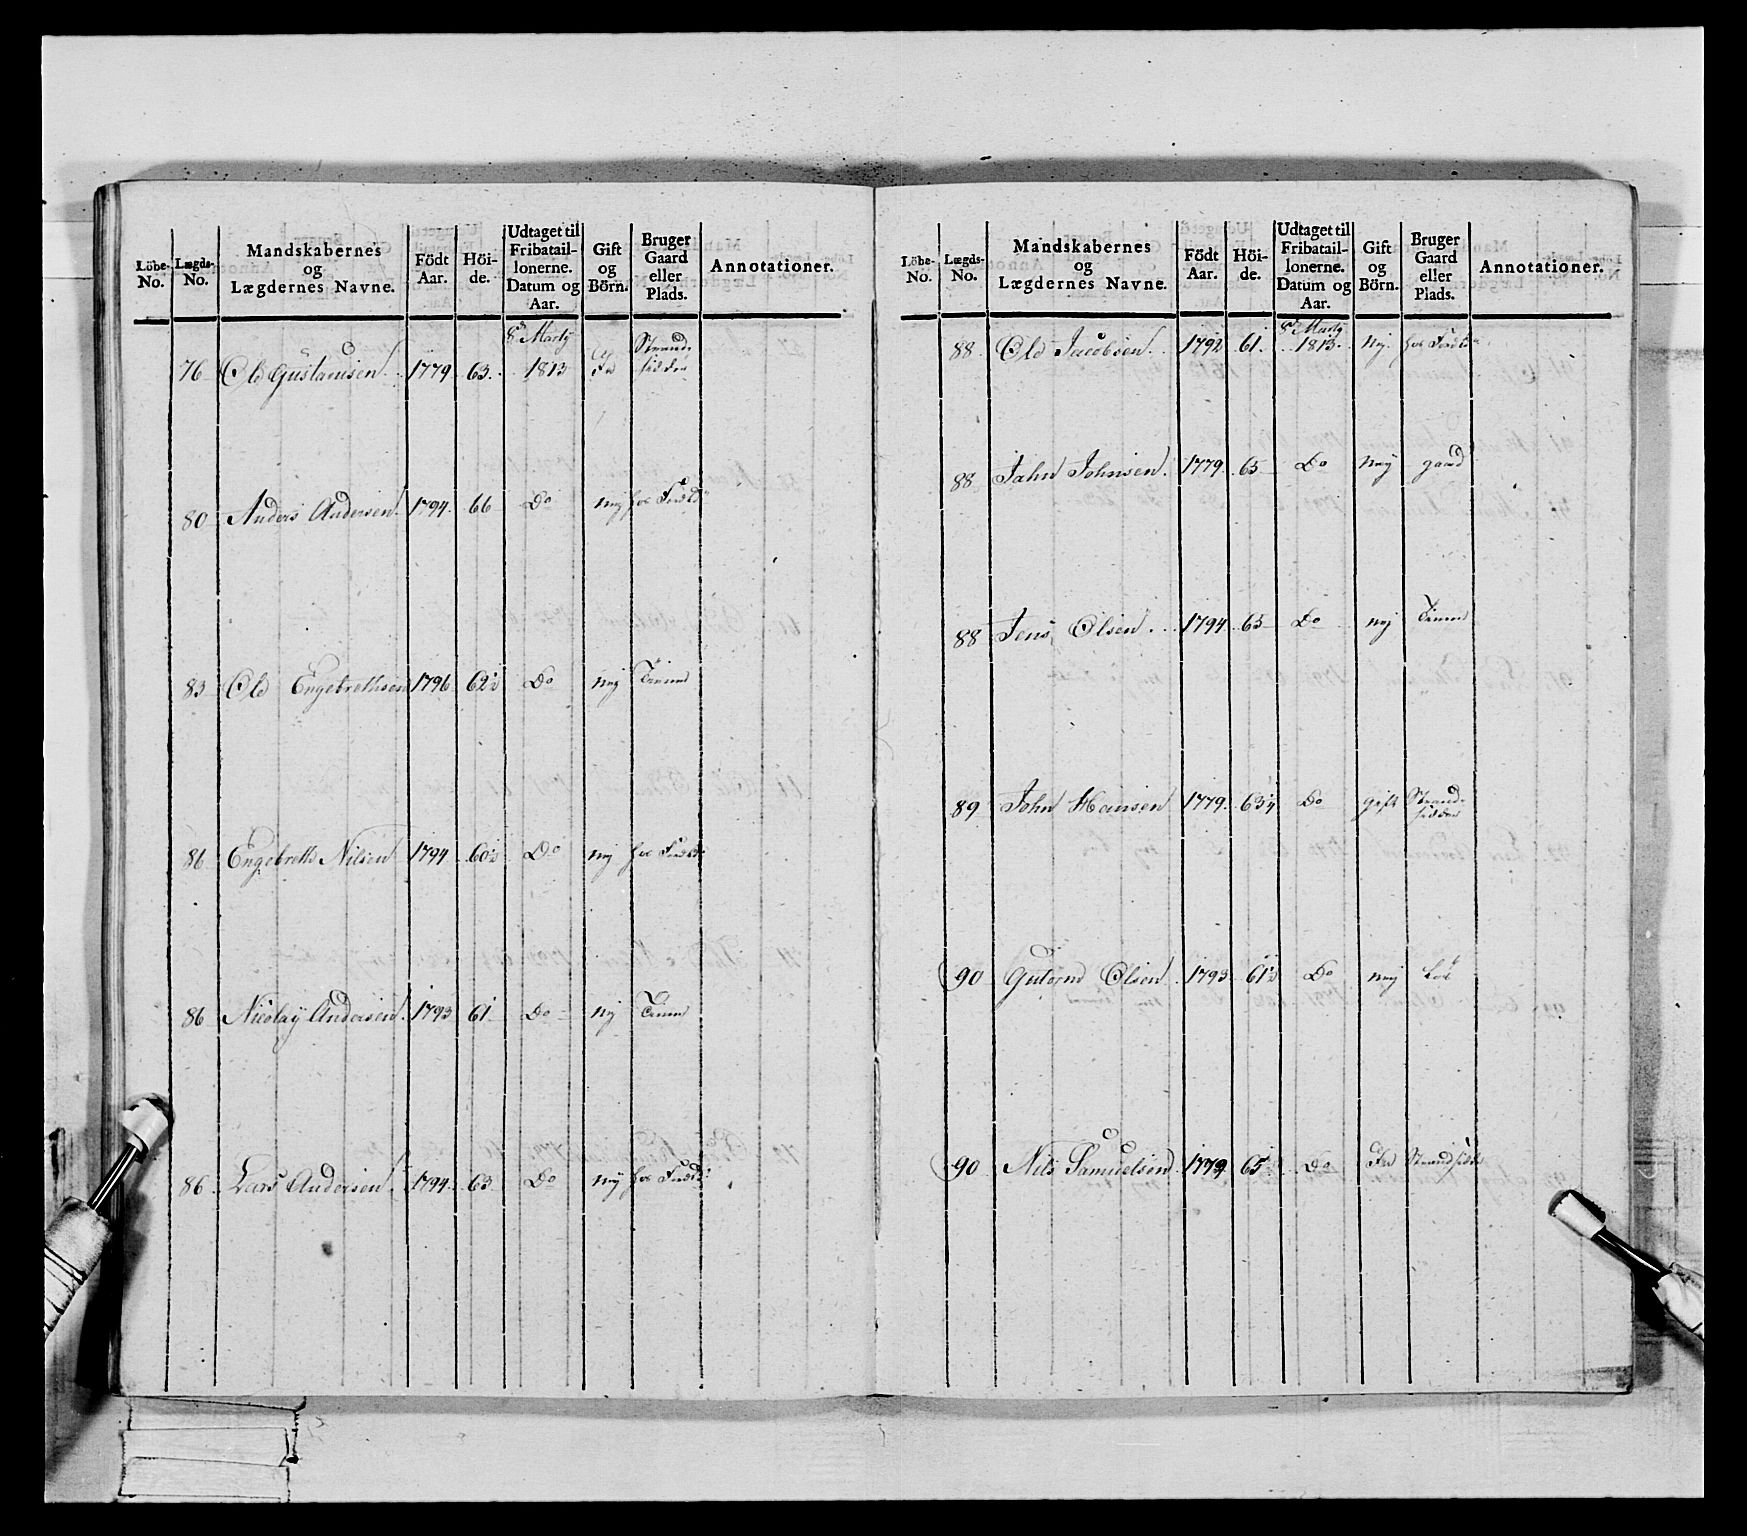 Löbe-No. Lægds-No. Mandskabernes og Lægdernes Navne. Födt Aar. Höide. Udtaget til Fribataillonerne. Datum og Aar. Gift og Börn. Bruger Gaard eller Plads. Annotationer.
76 Ole Gustavsen 1779 63. 8de Martj 1813 Strandsidder
80 Anders Andersen 1794. 66 Do nej hos Forældr
83 Ole Engebrethsen 1796 62½ Do nej Tienend
86 Engebreth Nilsen 1794 60½ Do nej hos Forældr
86 Nicolay Andersen. 1793 61 Do nej Tienend
86 Lars Andersen 1794. 63 Do nej hos Forældr
Löbe-No. Lægds-No. Mandskabernes og Lægdernes Navne. Födt Aar. Höide. Udtaget til Fribataillonerne. Datum og Aar. Gift og Börn. Bruger Gaard eller Plads. Annotationer.
88 Ole Jacobsen 1792 61. 8de Martj 1813. nej hos Forældr
88 Jahn Johnsen 1779. 65 Do nej gaard
88 Jens Olsen 1794 65 Do nej Tienend
89 John Hansen 1779. 63¼ Do gift Strandsidder
90 Gutorm Olsen 1793 61½ Do nej
90 Nils Samuelsen 1779 65 Do Strandsidder